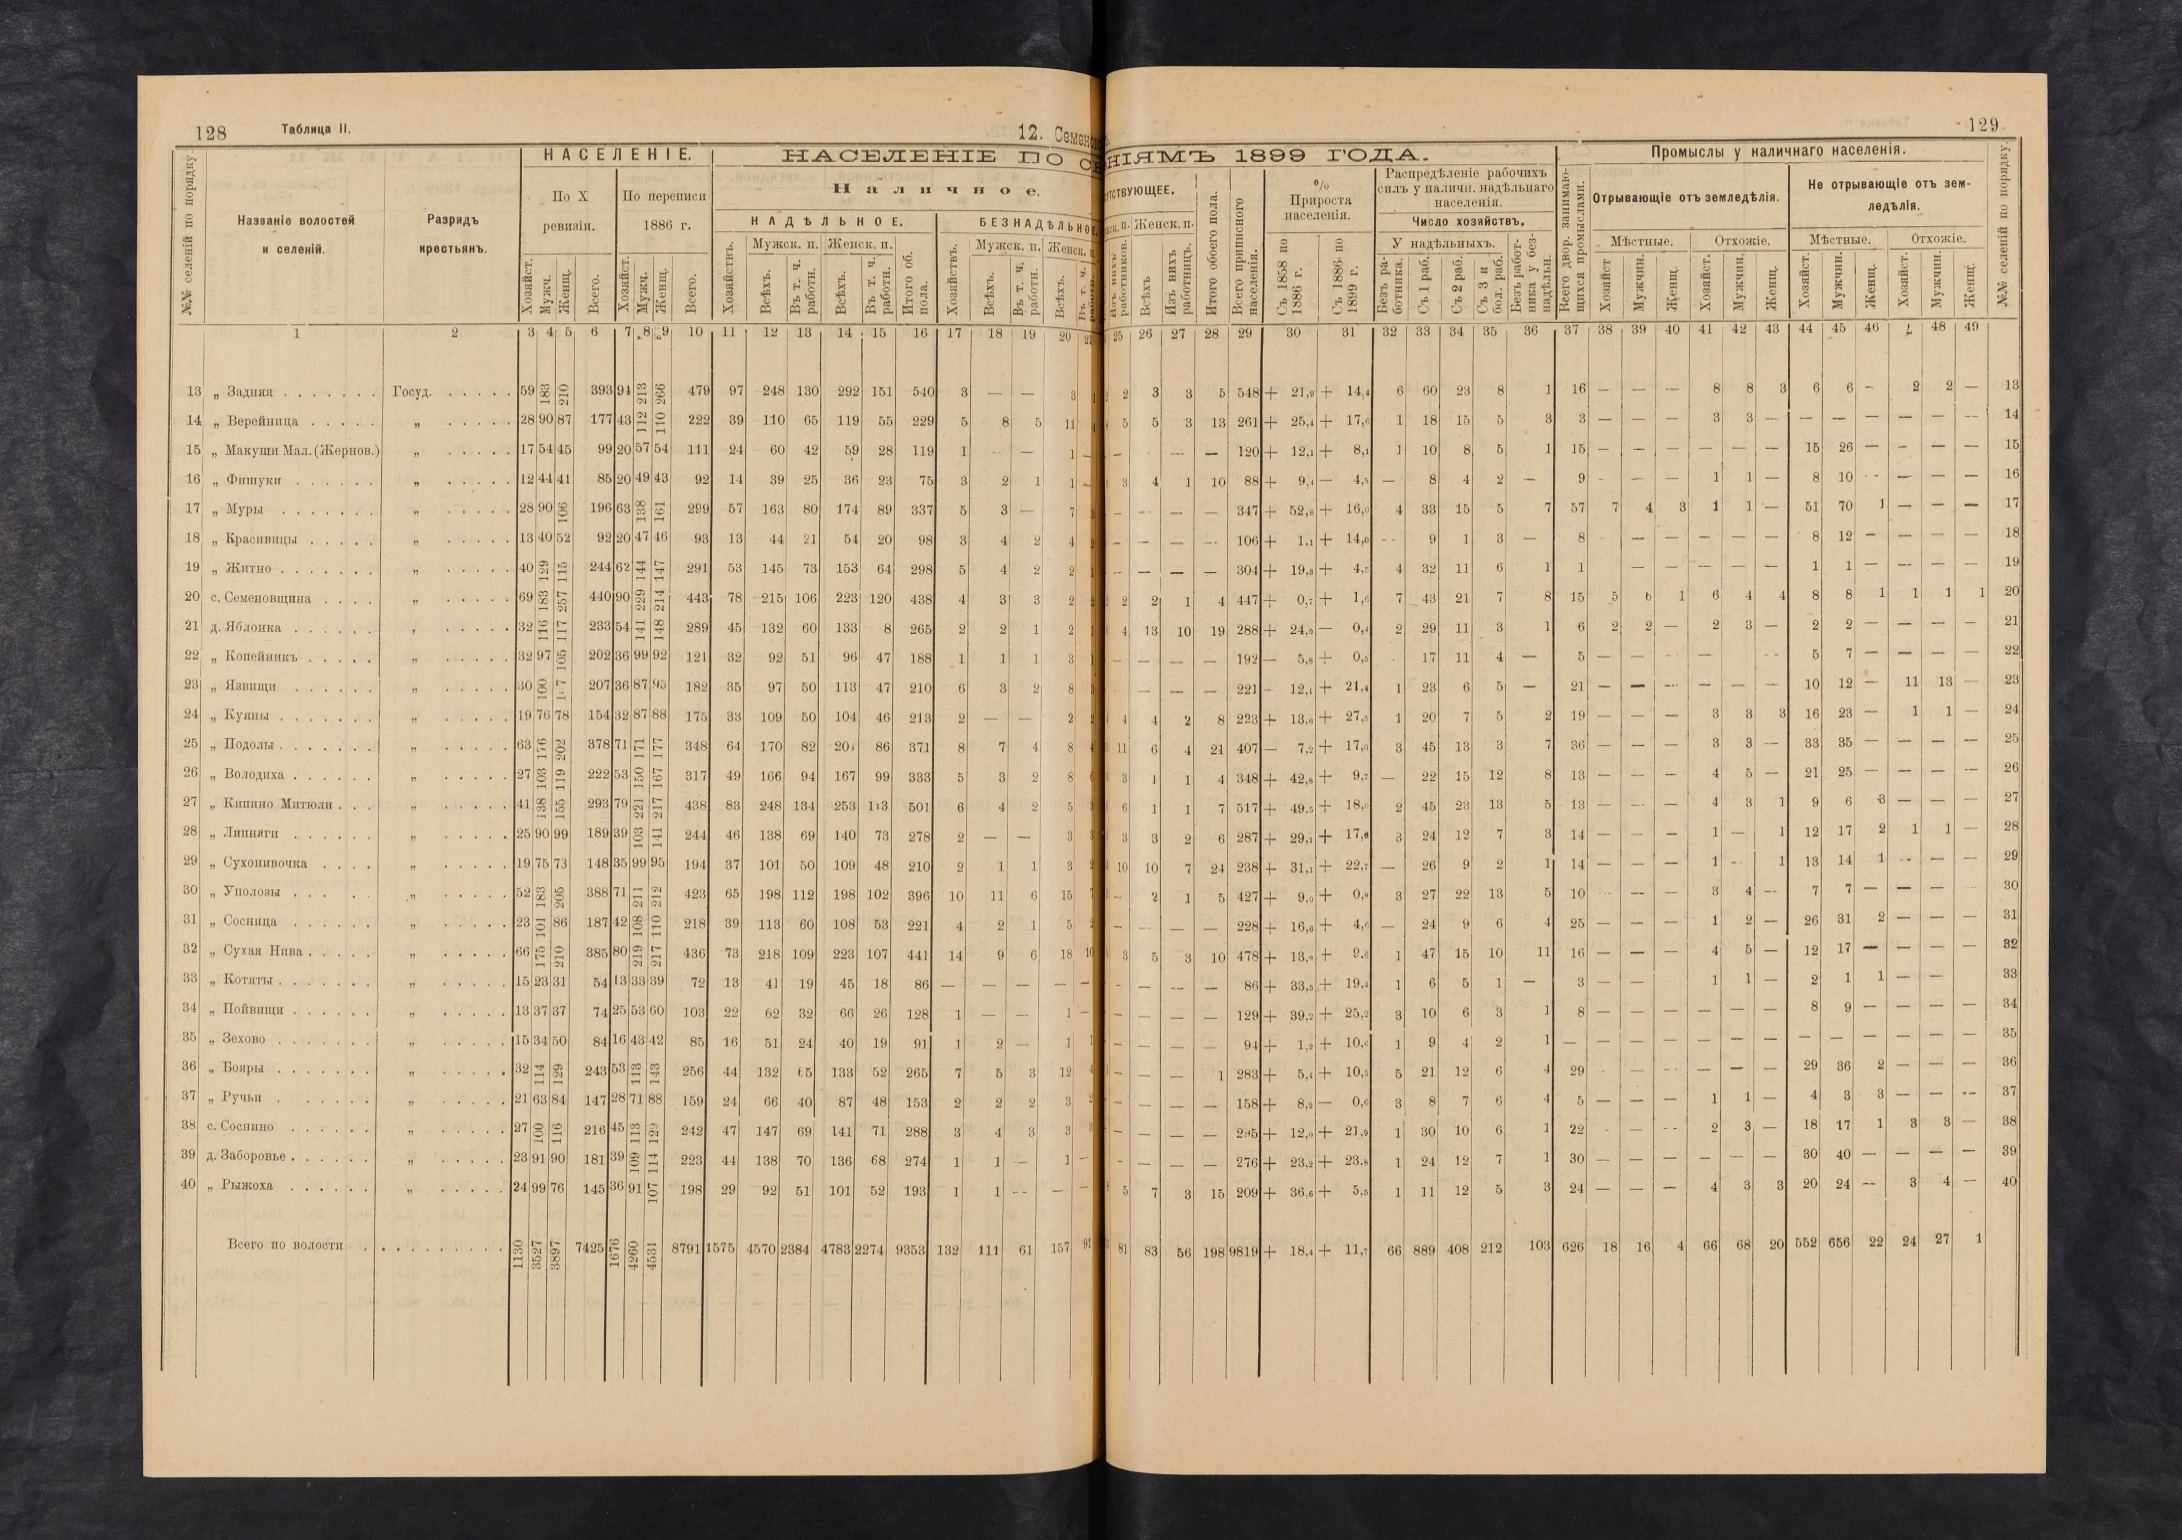 128 Таблица II. 12. Семенов
НАСЕЛЕНІЕ. НАСЕЛЕНІЕ ПО С
№№ селеній по порядку.
Названіе волостей и селеній.
Разрядъ крестьянъ.
По X ревизіи.
По переписи 1886 г.
Наличное.
НАДѢЛЬНОЕ. БЕЗНАДѢЛЬНОЕ.
Мужск. п. Женск. п. Мужск. п. Женск. п.
Хозяйст. Мужч. Женщ. Всего. Хозяйст. Мужч. Женщ. Всего. Хозяйствъ. Всѣхъ. Въ т. ч. работн. Всѣхъ. Въ т. ч. работн. Итого об. пола. Хозяйствъ. Всѣхъ. Въ т. ч. работн. Всѣхъ.
1 2 3 4 5 6 7 8 9 10 11 12 13 14 15 16 17 18 19 20 21
13 „ Задняя Госуд. 59 183 210 393 94 213 266 479 97 248 130 292 151 540 3 — — 3 1
14 „ Верейница „ 28 90 87 177 43 112 110 222 39 110 65 119 55 229 5 8 5 11 4
15 „ Макуши Мал. (Жернов.) „ 17 54 45 99 20 57 54 111 24 60 42 59 28 119 1 — — 1 —
16 „ Фишуки „ 12 44 41 85 20 49 43 92 14 39 25 36 23 75 3 2 1 1 —
17 „ Муры „ 28 90 106 196 63 138 161 299 57 163 80 174 89 337 5 3 — 7 3
18 „ Красивицы „ 13 40 52 92 20 47 46 93 13 44 21 54 20 98 3 4 2 4 2
19 „ Житно „ 40 129 115 244 62 144 147 291 53 145 73 153 64 298 5 4 2 2 1
20 с. Семеновщина „ 69 183 257 440 90 229 214 443 78 215 106 223 120 438 4 3 3 2 2
21 д. Яблонка „ 32 116 117 233 54 141 148 289 45 132 60 133 8 265 2 2 1 2 1
22 „ Копейникъ „ 32 97 105 202 36 99 92 121 32 92 51 96 47 188 1 1 1 3 1
23 „ Язвищи „ 30 100 107 207 36 87 95 182 35 97 50 113 47 210 6 3 2 8 3
24 „ Куяны „ 19 76 78 154 32 87 88 175 33 109 50 104 46 213 2 — — 2 2
25 „ Подолы „ 63 176 202 378 71 171 177 348 64 170 82 201 86 371 8 7 4 8 4
26 „ Володиха „ 27 103 119 222 53 150 167 317 49 166 94 167 99 333 5 3 2 8 6
27 „ Кипино Митюли „ 41 138 155 293 79 221 217 438 83 248 134 253 113 501 6 4 2 5 3
28 „ Липняги „ 25 90 99 189 39 103 141 244 46 138 69 140 73 278 2 — — 3 3
29 „ Сухонивочка „ 19 75 73 148 35 99 95 194 37 101 50 109 48 210 2 1 1 3 2
30 „ Уполозы „ 52 183 205 388 71 211 212 423 65 198 112 198 102 396 10 11 6 15 7
31 „ Сосница „ 23 101 86 187 42 108 110 218 39 113 60 108 53 221 4 2 1 5 2
32 „ Сухая Нива „ 66 175 210 385 80 219 217 436 73 218 109 223 107 441 14 9 6 18 10
33 „ Котяты „ 15 23 31 54 13 33 39 72 13 41 19 45 18 86 — — — — —
34 „ Пойвищи „ 13 37 37 74 25 53 60 103 22 62 32 66 26 128 1 — — 1 —
35 „ Зехово „ 15 34 50 84 16 43 42 85 16 51 24 40 19 91 1 2 — 1 1
36 „ Бояры „ 32 114 129 243 53 113 143 256 44 132 65 133 52 265 7 5 3 12 4
37 „ Ручьи „ 21 63 84 147 28 71 88 159 24 66 40 87 48 153 2 2 2 3 2
38 с. Соснино „ 27 100 116 216 45 113 129 242 47 147 69 141 71 288 3 4 3 3 3
39 д. Заборовье „ 23 91 90 181 39 109 114 223 44 138 70 136 68 274 1 1 — 1 —
40 „ Рыжоха „ 24 99 76 145 36 91 107 198 29 92 51 101 52 193 1 1 — — —
Всего по волости 1130 3527 3897 7425 1676 4260 4531 8791 1575 4570 2384 4783 2274 9353 132 111 61 157 91
129
НІЯМЪ 1899 ГОДА. Промыслы у наличнаго населенія.
тствующее. Женск. п.
Изъ нихъ работниковъ. Всѣхъ Изъ нихъ работницъ. Итого обоего пола. Всего приписного населенія.
% Прироста населенія.
Съ 1858 по 1886 г. Съ 1886 по 1899 г.
Распредѣленіе рабочихъ силъ у наличн. надѣльнаго населенія.
Число хозяйствъ.
У надѣльныхъ.
Безъ работника. Съ 1 раб. Съ 2 раб. Съ 3 и бол. раб. Безъ работника у безнадѣльн.
Всего двор. занимающихся промыслами.
Отрывающіе отъ земледѣлія. Не отрывающіе отъ земледѣлія.
Мѣстные. Отхожіе. Мѣстные. Отхожіе.
Хозяйст Мужчин. Женщ. Хозяйст. Мужчин. Женщ. Хозяйст. Мужчин. Женщ. Хозяйст. Мужчин. Женщ.
№№ селеній по порядку.
25 26 27 28 29 30 31 32 33 34 35 36 37 38 39 40 41 42 43 44 45 46 48 49
2 3 3 5 548 + 21,9 + 14,4 6 60 23 8 1 16 — — — 8 8 3 6 6 — 2 2 — 13
5 5 3 13 261 + 25,4 + 17,6 1 18 15 5 3 3 — — — 3 3 — — — — — — — 14
— — — — 120 + 12,1 + 8,1 1 10 8 5 1 15 — — — — — — 15 26 — — — — 15
3 4 1 10 88 + 9,4 — 4,5 — 8 4 2 — 9 — — — 1 1 — 8 10 — — — — 16
— — — — 347 + 52,6 + 16,0 4 33 15 5 7 57 7 4 3 1 1 — 51 70 1 — — — 17
— — — — 106 + 1,1 + 14,0 — 9 1 3 — 8 — — — — — — 8 12 — — — — 18
— — — — 304 + 19,3 + 4,5 4 32 11 6 1 1 — — — — — 1 1 — — — — 19
2 2 1 4 447 + 0,7 + 1,6 7 43 21 7 8 15 5 6 1 6 4 4 8 8 1 1 1 1 20
4 13 10 19 288 + 24,0 — 0,4 2 29 11 3 1 6 2 2 — 2 3 — 2 2 — — — — 21
— — — — 192 — 5,8 + 0,5 17 11 4 — 5 — — — — — 5 7 — — — — 22
— — — — 221 - 12,1 + 21,4 1 23 6 5 — 21 — — — — — — 10 12 — 11 13 — 23
4 4 2 8 223 + 13,6 + 27,5 1 20 7 5 2 19 — — — 3 3 3 16 23 — 1 1 — 24
11 6 4 21 407 — 7,2 + 17,0 3 45 13 3 7 36 — — — 3 3 — 33 35 — — — — 25
3 1 1 4 348 + 42,8 + 9,7 — 22 15 12 8 13 — — — 4 5 — 21 25 — — — — 26
6 1 1 7 517 + 49,5 + 18,0 2 45 23 13 5 13 — — — 4 3 1 9 6 3 — — — 27
3 3 2 6 287 + 29,1 + 17,6 3 24 12 7 3 14 — — — 1 — 1 12 17 2 1 1 — 28
10 10 7 24 238 + 31,1 + 22,7 — 26 9 2 1 14 — — — 1 — 1 13 14 1 — — — 29
— 2 1 5 427 + 9,0 + 0,9 3 27 22 13 5 10 — — — 3 4 — 7 7 — — — 30
— — — — 228 + 16,6 + 4,6 — 24 9 6 4 25 — — — 1 2 — 26 31 2 — — — 31
3 5 3 10 478 + 13,2 + 9,6 1 47 15 10 11 16 — — — 4 5 — 12 17 — — — — 32
— — — — 86 + 33,3 + 19,4 1 6 5 1 — 3 — — 1 1 — 2 1 1 — — 33
— — — — 129 + 39,2 + 25,2 3 10 6 3 1 8 — — — — — — 8 9 — — — — 34
— — — — 94 + 1,2 + 10,6 1 9 4 2 1 — — — — — — — — — — — — — 35
— — — 1 283 + 5,4 + 10,5 5 21 12 6 4 29 — — — — — — 29 36 2 — — — 36
— — — — 158 + 8,2 — 0,6 3 8 7 6 4 5 — — — 1 1 — 4 3 3 — — — 37
— — — — 295 + 12,0 + 21,9 1 30 10 6 1 22 — — — 2 3 — 18 17 1 3 3 — 38
— — — — 276 + 23,2 + 23,8 1 24 12 7 1 30 — — — — — — 30 40 — — — — 39
5 7 3 15 209 + 36,6 + 5,5 1 11 12 5 3 24 — — — 4 3 3 20 24 — 3 4 — 40
81 83 56 198 9819 + 18,4 + 11,7 66 889 408 212 103 626 18 16 4 66 68 20 552 656 22 24 27 1